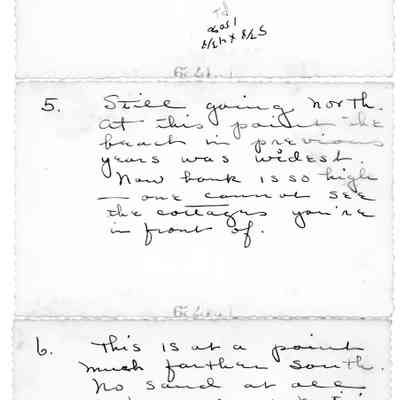 5. Still going north.
At this point the
beach in previous
years was widest.
Now bank is so high
— one cannot see
the cottages you're
in front of.
6. This is at a point
much farther south.
No sand at all